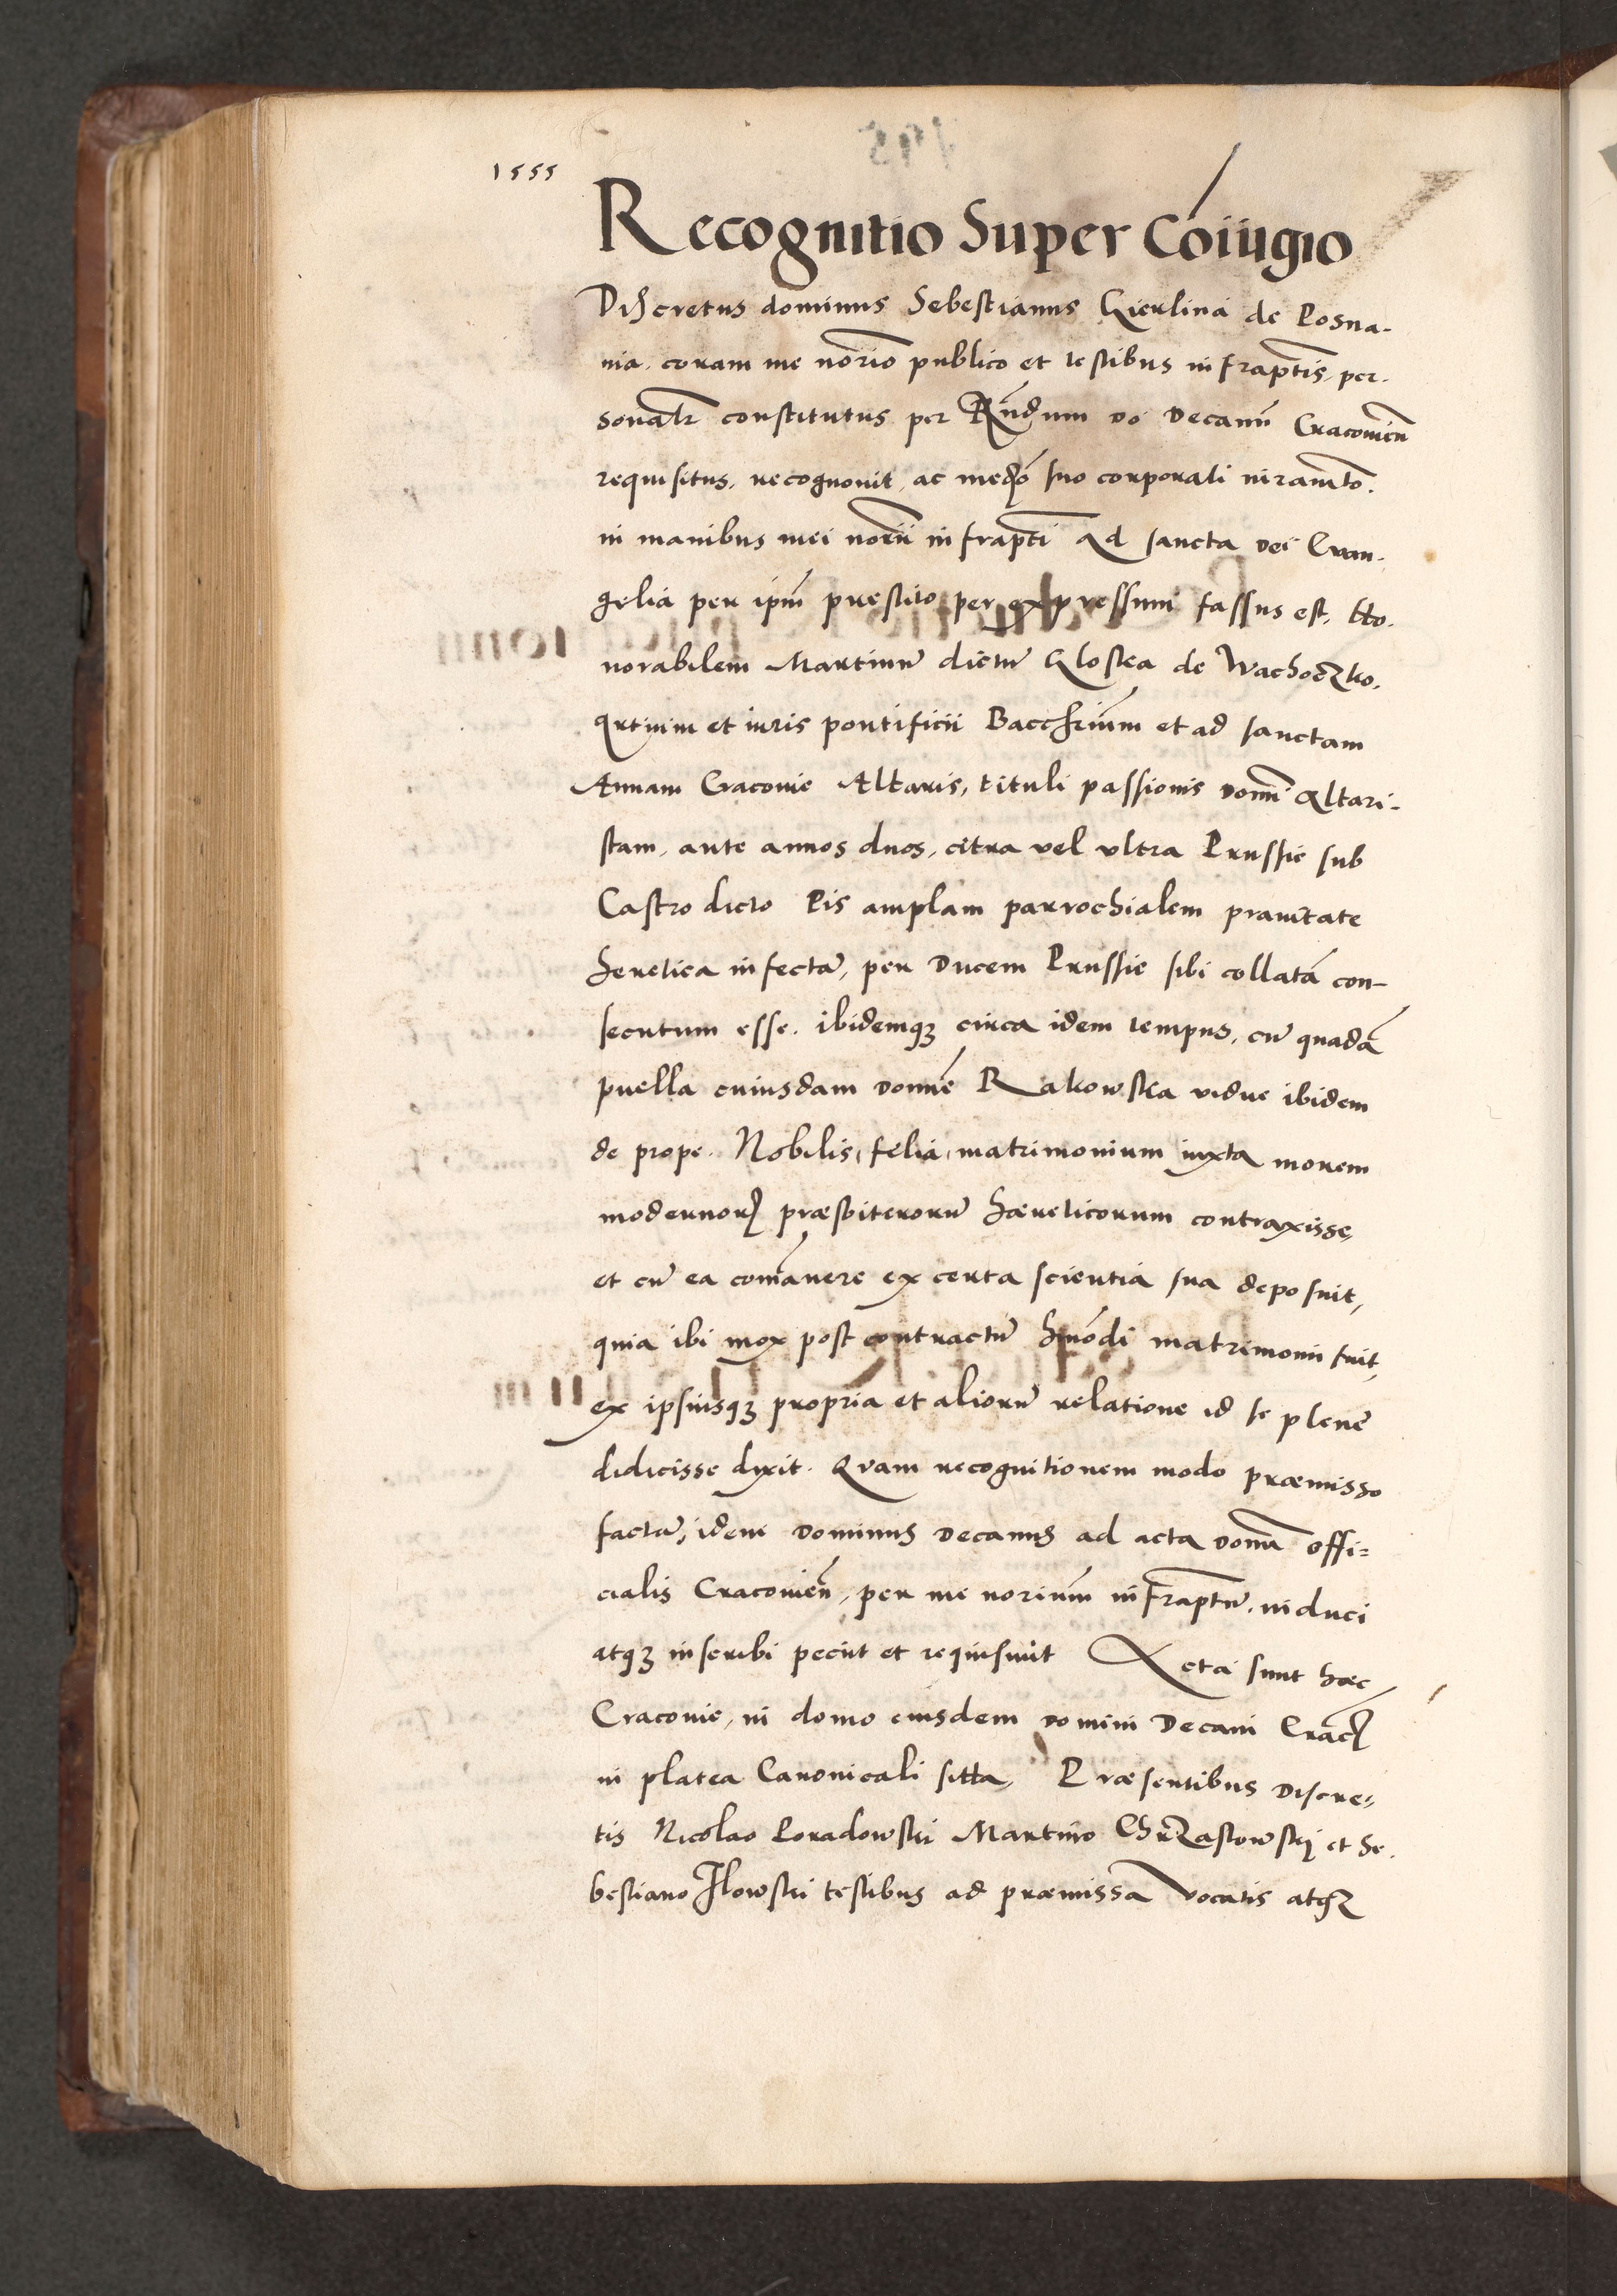 1555
Recognitio Super Coiugio
Discretus dominus Sebestianus Gierlina de Posna-
nia. coram me norio publico et testibus infraptis, per-
sonalr constitutus per Rndum do Decanu Cracovien
requisitus, recognovit, ac medio suo corporali iuramto.
in manibus mei norii infrapti ad sancta dei Evan-
gelia per ipm prestito per expressum fassus est, Ho-
norabilem Martinum dictum Gloska de Wachoczko.
artium et iuris pontificii Bacchrium et ad sanctam
Annam Cracovie Altaris, tituli passionis domi Altari-
stam, ante annos duos, citra vel ultra Prussie sub
Castro dicto Pis amplam parrochialem pravitate
heretica infectam, per Ducem Prussie sibi collatam con-
secutum esse. ibidemq3 circa idem tempus, cum quadam
puella cuiusdam domine Rakowska vidue ibidem
de prope. Nobilis, felia, matrimonium iuxta morem
modernor præsbiterorum hæreticorum contraxisse,
et cum ea comanere ex certa scientia sua deposuit,
quia ibi mox post contractum hmodi matrimonii fuit,
ex ipsiusq3 propria et aliorum relatione id se plene
didicisse dixit. Quam recognitionem modo præmisso
factam, idem Dominus Decanus ad acta domi offi=
cialis Cracovien, per me norium infraptum, induci
atq3 inscribi peciit et requisivit Acta sunt hæc
Cracovie, in domo eiusdem domini Decani Crac
in platea Canonicali sitta, Præsentibus Discre-
tis Nicolao Poradowski Martino Chrzastowski et Se-
bestiano Ilowski testibus ad præmissa vocatis atq3